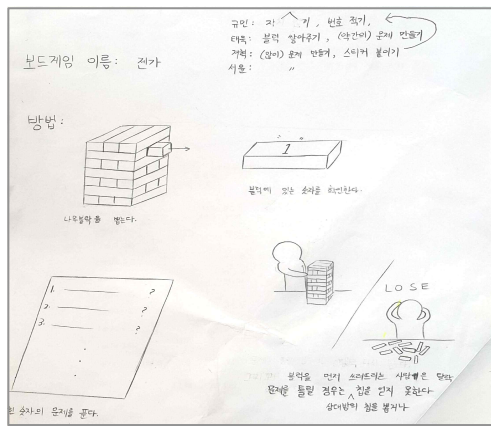 규민: 자 기, 번호 적기,
태욱: 블럭 쌓아주기, (약간의) 문제 만들기
(많이) 문제 만들기, 스티커 붙이기
서윤: "
보드게임 이름: 젠가
방법:
나무블럭을 뽑는다.
1
블럭에 있는 숫자를 확인한다.
1. ?
2. ?
3. ?
숫자의 문제를 푼다.
LOSE
블럭을 먼저 쓰러뜨리는 사람은 탈락
문제를 틀릴 경우는 칩을 얻지 못한다
상대방의 칩을 뺏거나